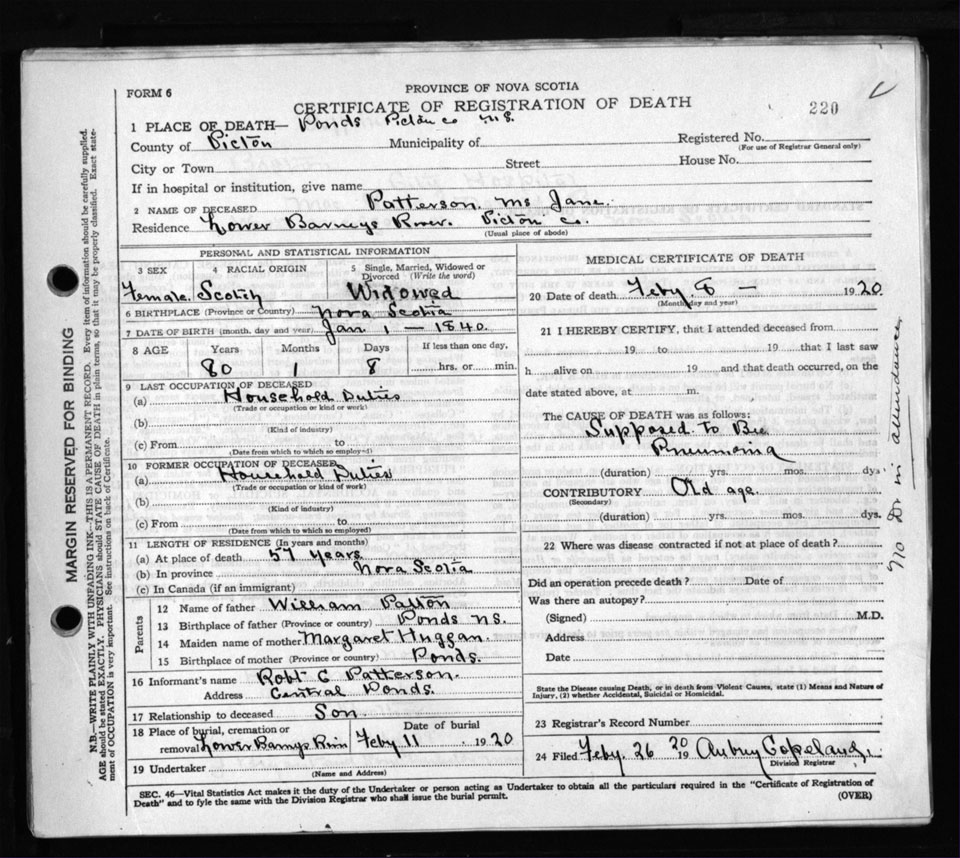 FORM 6
PROVINCE OF NOVA SCOTIA
CERTIFICATE OF REGISTRATION OF DEATH
220
1 PLACE OF DEATH— Ponds Pictou Co N.S.
County of Pictou Municipality of Registered No.
(For use of Registrar General only)
City or Town Street House No.
If in hospital or institution, give name
2 NAME OF DECEASED Patterson. Ms Jane.
Residence Lower Barneys River. Pictou Co.
(Usual place of abode)
PERSONAL AND STATISTICAL INFORMATION
3 SEX 4 RACIAL ORIGIN 5 Single, Married, Widowed or Divorced (Write the word)
Female. Scotch Widowed
6 BIRTHPLACE (Province or Country) Nova Scotia
7 DATE OF BIRTH (month, day and year) Jan 1 — 1840.
8 AGE Years Months Days If less than one day,
80 1 8 hrs. or min.
9 LAST OCCUPATION OF DECEASED
(a) Household Duties
(Trade or occupation or kind or work)
(b)
(Kind of industry)
(c) From to
(Date from which to which so employed)
10 FORMER OCCUPATION OF DECEASED
(a) Household Duties
(Trade or occupation or kind of work)
(b)
(Kind of industry)
(c) From to
(Date from which to which so employed)
11 LENGTH OF RESIDENCE (In years and months)
(a) At place of death 57 years
(b) In province Nova Scotia
(c) In Canada (if an immigrant)
Parents
12 Name of father William Patton
13 Birthplace of father (Province or country) Ponds N.S.
14 Maiden name of mother Margaret Huggan.
15 Birthplace of mother (Province or country) Ponds.
16 Informant's name Robt C Patterson.
Address Central Ponds.
17 Relationship to deceased Son
18 Place of burial, cremation or removal Date of burial
Lower Barnys Feby 11 1920
19 Undertaker
(Name and Address)
MEDICAL CERTIFICATE OF DEATH
20 Date of death Feby. 8 — 1920
(Month day and year)
21 I HEREBY CERTIFY, that I attended deceased from
19 to 19 that I last saw
h alive on 19 and that death occurred, on the
date stated above, at m.
The CAUSE OF DEATH was as follows:
Supposed To Be
Pneumonia
(duration) yrs. mos. dys.
CONTRIBUTORY Old age.
(Secondary)
(duration) yrs. mos. dys.
22 Where was disease contracted if not at place of death?
Did an operation precede death? Date of
Was there an autopsy?
(Signed) M.D.
Address
Date
State the Disease causing Death, or in death from Violent Causes, state (1) Means and Nature of
Injury, (2) whether Accidental, Suicidal or Homicidal.
23 Registrar's Record Number
24 Filed Feby. 26 1920 Aubrey Copeland.
Division Registrar
No Dr in attendance.
SEC. 46—Vital Statistics Act makes it the duty of the Undertaker or person acting as Undertaker to obtain all the particulars required in the "Certificate of Registration of
Death" and to fyle the same with the Division Registrar who shall issue the burial permit.
(OVER)
MARGIN RESERVED FOR BINDING
N.B.—WRITE PLAINLY WITH UNFADING INK.—THIS IS A PERMANENT RECORD. Every item of information should be carefully supplied.
AGE should be stated EXACTLY. PHYSICIANS should STATE CAUSE OF DEATH in plain terms, so that it may be properly classified. Exact state-
ment of OCCUPATION is very important. See instructions on back of Certificate.